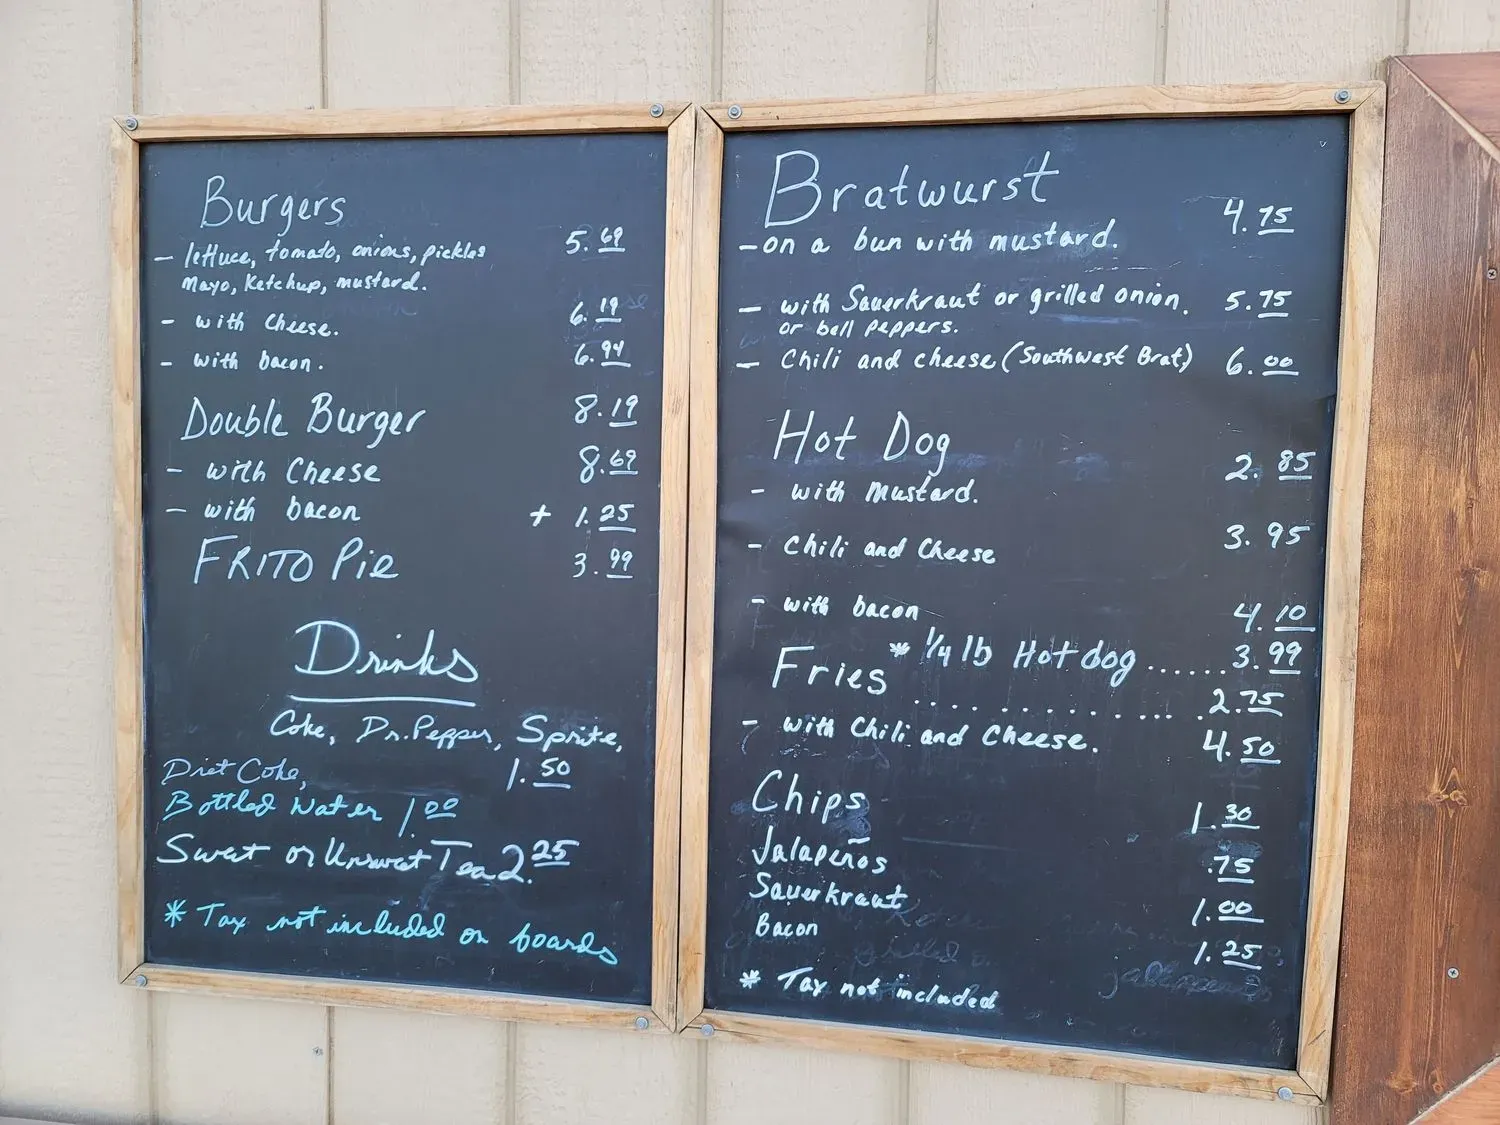 Burgers
- lettuce, tomato, onions, pickles 5.69
Mayo, Ketchup, mustard.
- with Cheese. 6.19
- with bacon. 6.94
Double Burger 8.19
- with Cheese 8.69
- with bacon + 1.25
FRITO Pie 3.99
Drinks
Coke, Dr. Pepper, Sprite,
Diet Coke, 1.50
Bottled Water 1.00
Sweet or Unsweet Tea 2.25
* Tax not included on boards
Bratwurst 4.75
- on a bun with mustard.
- with Sauerkraut or grilled onion. 5.75
or bell peppers.
- Chili and cheese (Southwest Brat) 6.00
Hot Dog 2.85
- with Mustard.
- Chili and Cheese 3.95
- with bacon 4.10
* 1/4 lb Hot dog ...... 3.99
Fries ............... 2.75
- with Chili and Cheese. 4.50
Chips 1.30
Jalapeños .75
Sauerkraut 1.00
Bacon 1.25
* Tax not included